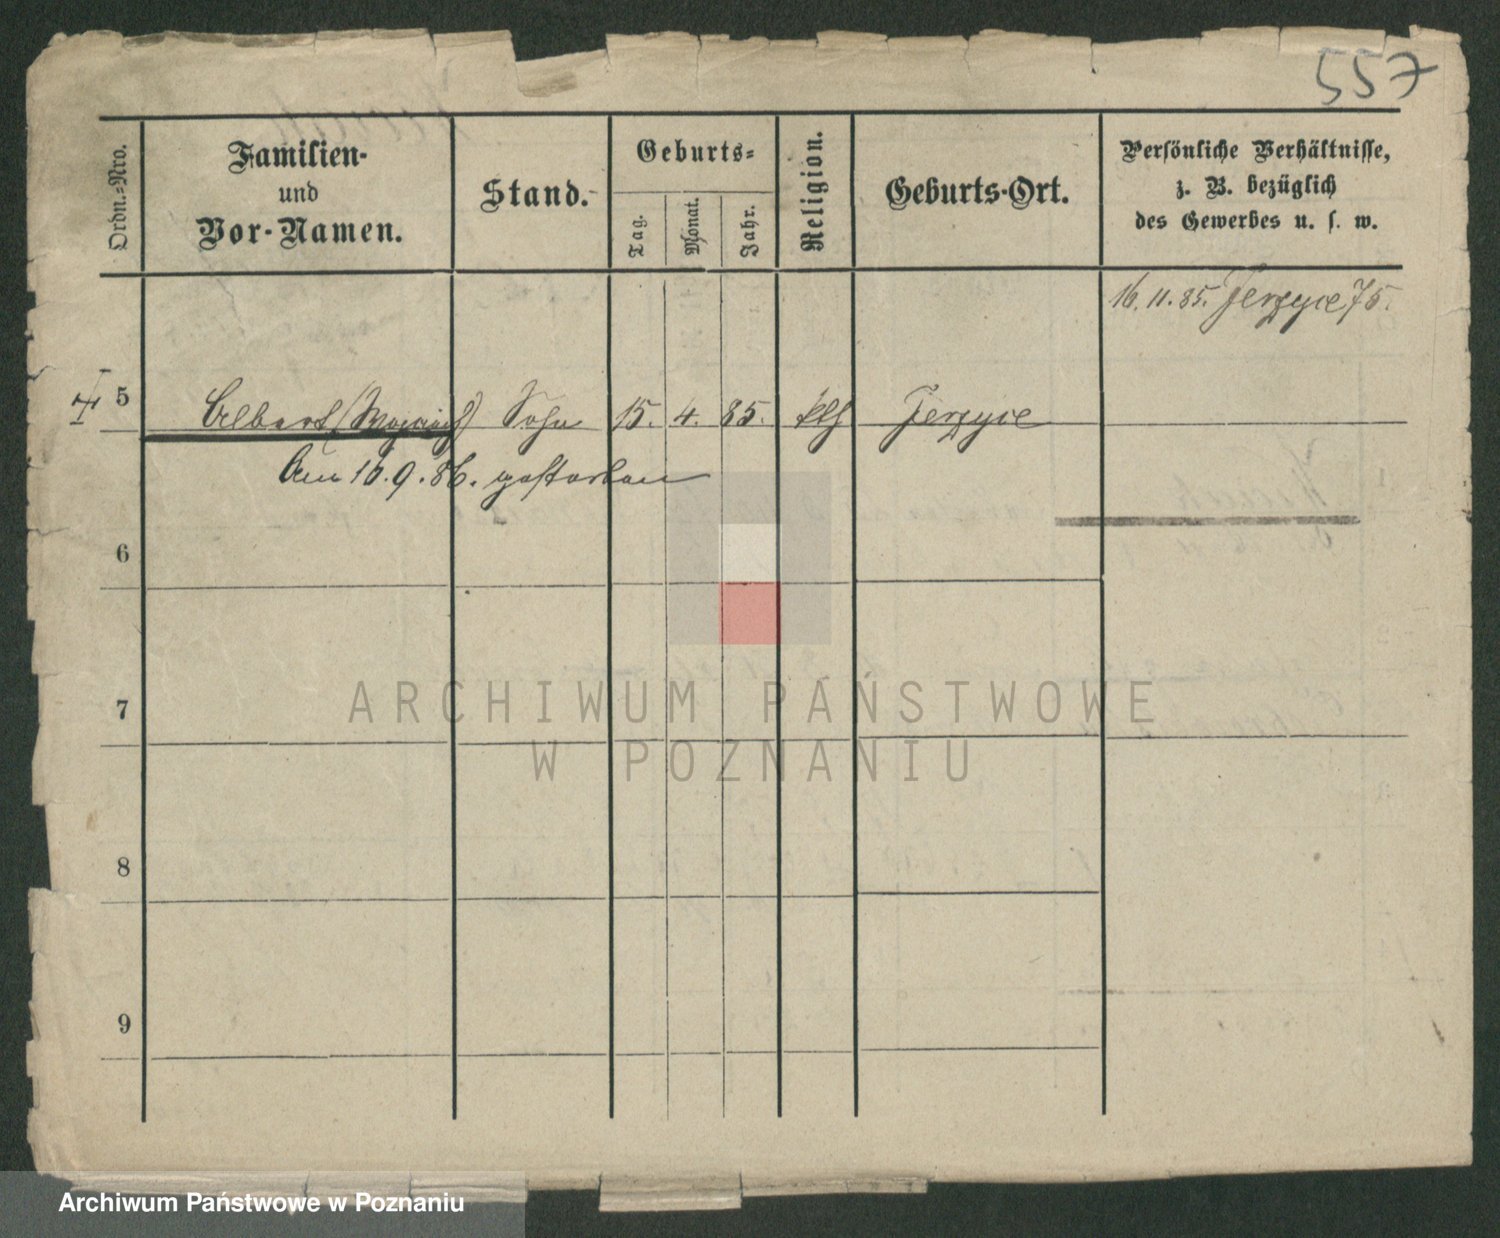 557
Ordn.-Nro.
Familien-
und
Vor-Namen.
Stand.
Geburts-
Tag.
Monat.
Jahr.
Religion.
Geburts-Ort.
Persönliche Verhältnisse,
z. B. bezüglich
des Gewerbes u. s. w.
16.11.85. Jerzyce 75.
5 Albert (Wojciech) Sohn 15. 4. 85. kth Jerzyce
Am 16.9.86. gestorben
6
7
ARCHIWUM PAŃSTWOWE
W POZNANIU
8
9
Archiwum Państwowe w Poznaniu